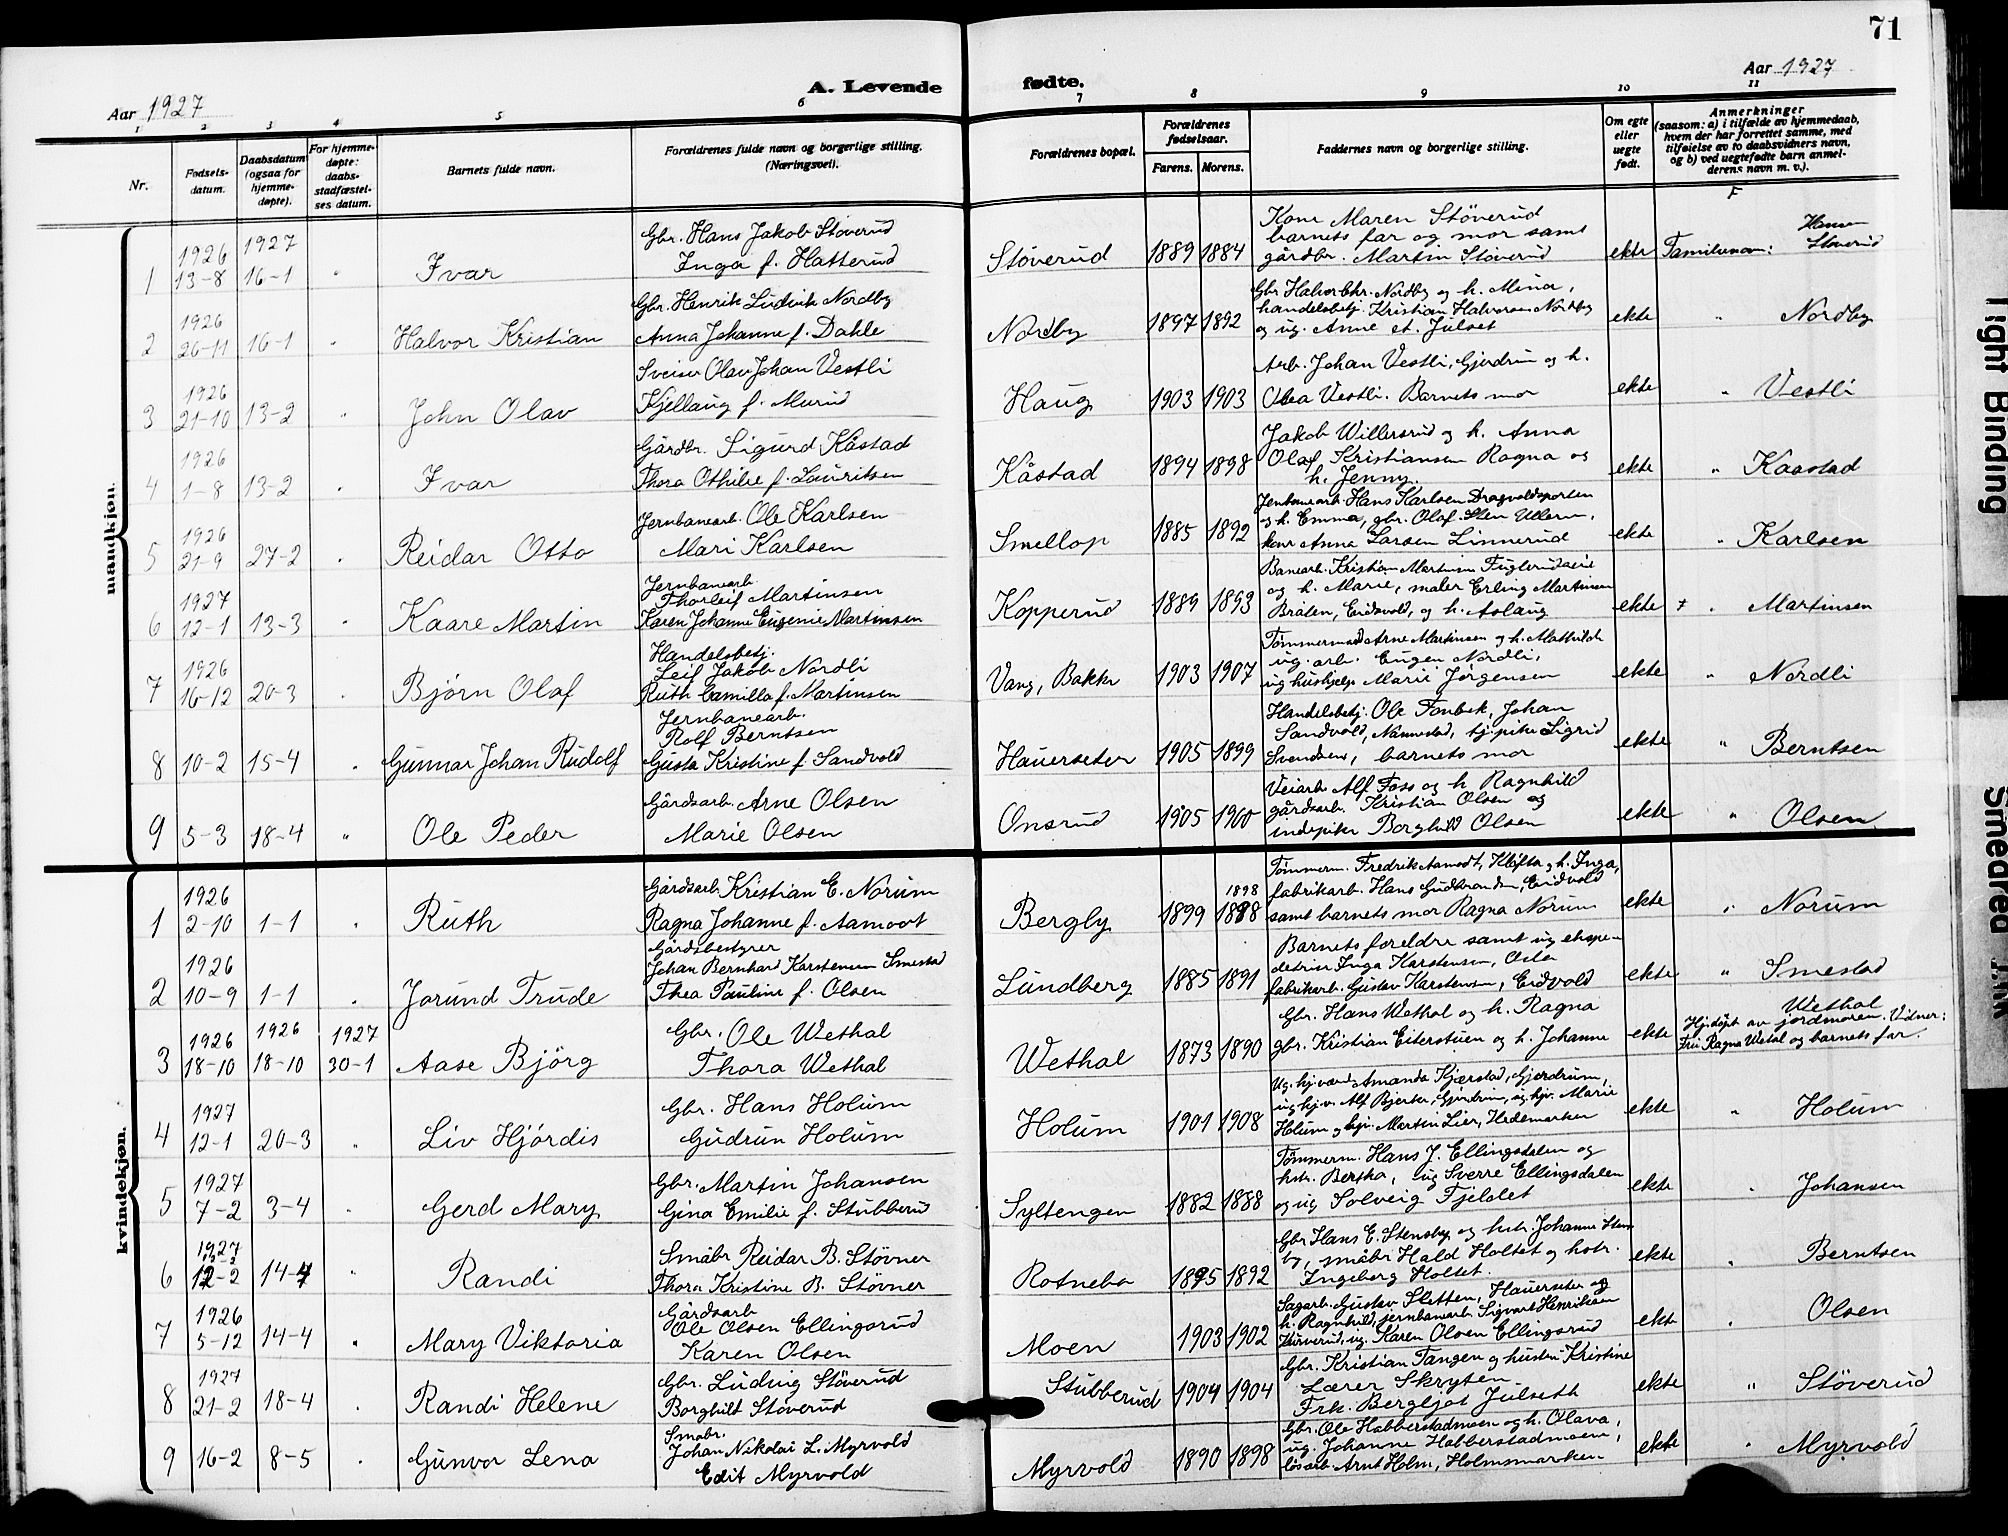 71
Aar 1927
A. Levende fødte.
Aar 1927
1 2 3 4 5 6 7 8 9 10 11
Nr.
Fødsels-
datum.
Daabsdatum
(ogsaa for
hjemme-
døpte).
For hjemme-
døpte:
daabs-
stadfæstel-
ses datum.
Barnets fulde navn.
Forældrenes fulde navn og borgerlige stilling.
(Næringsvei).
Forældrenes bopæl.
Forældrenes
fødselsaar.
Farens. Morens.
Faddernes navn og borgerlige stilling.
Om egte
eller
uegte
født.
Anmerkninger
(saasom: a) i tilfælde av hjemmedaab,
hvem der har forrettet samme, med
tilføielse av to daabsvidners navn,
og b) ved uegtefødte barn anmel-
derens navn m. v.).
F
mandkjøn.
1 1926 13-8 1927 16-1 " Ivar
Gbr. Hans Jakob Støverud
Inga f. Hatterud
Støverud 1889 1884
Kone Maren Støverud
barnets far og mor samt
gårdbr. Martin Støverud
ekte Familienavn: Støverud
2 1926 26-11 16-1 " Halvor Kristian
Gbr. Henrik Ludvik Nordby
Anna Johanne f. Dahle
Nordby 1897 1892
Gbr Halvor Chr. Nordby og h. Mina,
handelsbetj. Kristian Halvorsen Nordby
og ug. Anne et. Julset
ekte " Nordby
3 1926 21-10 13-2 " John Olav
Sveiser Olav Johan Vestli
Kjellaug f. Murud
Haug 1903 1903
Arb. Johan Vestli, Gjerdrum og h.
Olea Vestli. Barnets mor
ekte " Vestli
4 1926 1-8 13-2 " Ivar
Gårdbr. Sigurd Kåstad
Thora Othilie f. Lauritsen
Kåstad 1894 1898
Jakob Willersrud og h. Anna
Olaf Kristiansen Ragna og
h. Jenny.
ekte " Kaastad
5 1926 21-9 27-2 " Reidar Otto
Jernbanearb. Ole Karlsen
Mari Karlsen
Smellop 1885 1892
Jernbanearb. Hans Karlsen Dragvoldsporten
og h. Emma, gbr. Olaf Sten Ullern,
kone Anna Larsen Linnerud
ekte " Karlsen
6 1927 12-1 13-3 " Kaare Martin
Jernbanearb.
Thorleif Martinsen
Karen Johanne Eugenie Martinsen
Kopperud 1889 1893
Banearb. Kristian Martinsen Fuglerudseie
og h. Marie, maler Erling Martinsen
Bråten, Eidsvold, og h. Aslaug
ekte + " Martinsen
7 1926 16-12 20-3 " Bjørn Olaf
Handelsbetj.
Leif Jakob Nordli
Ruth Camilla f. Martinsen
Vang, Bakke 1903 1907
Tømmermand Arne Martinsen og h. Mathilde
ug. arb. Eugen Nordli,
ug hushjelp Marie Jørgensen
ekte " Nordli
8 10-2 15-4 " Gunnar Johan Rudolf
Jernbanearb.
Rolf Berntsen
Gusta Kristine f. Sandvold
Hauerseter 1905 1899
Handelsbetj. Ole Fonbek, Johan
Sandvold, Nannestad, tj.pike Sigrid
Svendsen, barnets mor
ekte " Berntsen
9 5-3 18-4 " Ole Peder
Gårdsarb. Arne Olsen
Marie Olsen
Onsrud 1905 1900
Veiarb. Alf Foss og h Ragnhild
gårdsarb. Kristian Olsen og
indepike Borghild Olsen
ekte " Olsen
kvindekjøn.
1 1926 2-10 1-1 " Ruth
Gårdsarb. Kristian E. Norum
Ragna Johanne f. Aamodt
Bergly 1899 1898 1888
Tømmerm. Fredrik Aamodt, Kløfta og h. Inga,
fabrikarb. Hans Gudbrandsen, Eidsvold
samt barnets mor Ragna Norum
ekte " Norum
2 1926 10-9 1-1 " Jorund Trude
Gårdsbestyrer
Johan Bernhard Karstensen Smestad
Thea Pauline f. Olsen
Lundberg 1885 1891
Barnets foreldre samt ug ekspe-
ditrise Inga Karstensen, Oslo
fabrikarb. Gustav Karstensen, Eidsvold
ekte " Smestad
3 1926 18-10 1926 18-10 1927 30-1 Aase Bjørg
Gbr. Ole Wethal
Thora Wethal
Wethal 1873 1890
Gbr. Hans Wethal og h. Ragna
gbr. Kristian Eiterstuen og h. Johanne
ekte Wethal
Hj.døpt av jordmoren. Vidner:
Fru Ragna Wetal og barnets far.
4 1927 12-1 20-3 " Liv Hjördis
Gbr. Hans Holum
Gudrun Holum
Holum 1901 1908
Ug. hj.vær. Amanda Kjærstad, Gjerdrum,
ug hj.v. Alf Bjerke, Gjerdrum, ug hjv. Marie
Holum og hjv. Martin Lier, Hedemarken
ekte " Holum
5 1927 7-2 3-4 " Gerd Mary
Gbr. Martin Johansen
Gina Emilie f. Stubberud
Syltengen 1882 1888
Tømmerm. Hans J. Ellingsdalen og
hstr. Berthe, ug Sverre Ellingsdalen
og ug Solveig Fjeldet
ekte " Johansen
6 1927 12-2 14-4 " Randi
Småbr Reidar B. Støvner
Thora Kristine B. Støvner
Rotnebo 1895 1892
Gbr Hans E. Stensby og hstr. Johanne Stens
by, småbr Hald Holtet og hstr.
Ingeborg Holtet.
ekte " Berntsen
7 1926 5-12 14-4 " Mary Viktoria
Gårdsarb
Ole Olsen Ellingsrud
Karen Olsen
Moen 1903 1902
Sagarb. Gustav Sletten, Hauerseter og
h. Ragnhild, jernbanearb. Sigvart Henriksen
Kurverud, ug. Karen Olsen Ellingsrud
ekte " Olsen
8 1927 21-2 18-4 " Randi Helene
Gbr. Ludvig Støverud
Borghilt Støverud
Stubberud 1904 1904
Gbr. Kristian Tangen og hustru Kristine
Lærer Skryten
Frk. Bergljot Julseth
ekte " Støverud
9 16-2 8-5 " Gunvor Lena
Småbr.
Johan Nikolai L. Myrvold
Edit Myrvold
Myrvold 1890 1898
Gbr. Ole Habberstadmoen og h. Olava,
ug. Johanne Habberstadmoen,
løsarb. Arnt Holm, Holmsmarken
ekte " Myrvold
Tight Binding
Smeared Ink